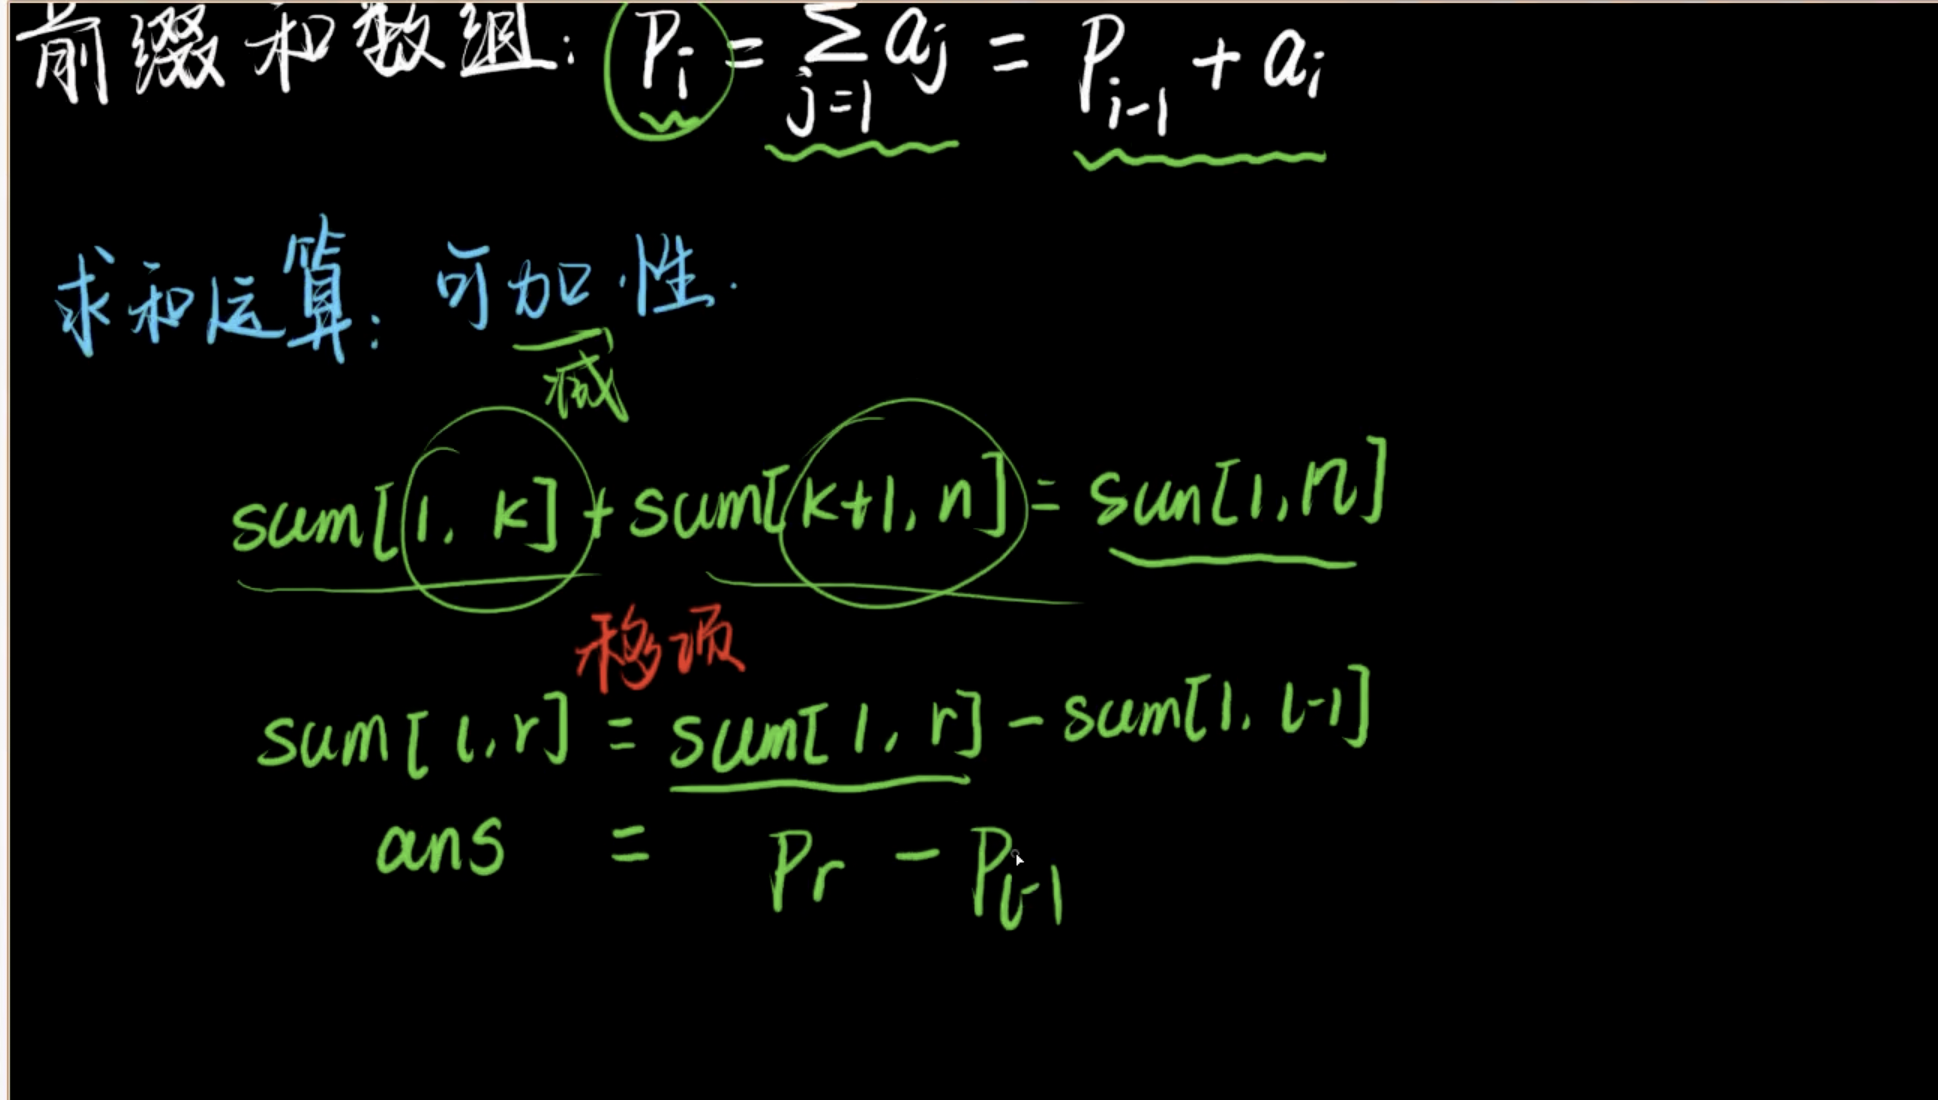 前缀和数组: Pᵢ = Σ aⱼ = Pᵢ₋₁ + aᵢ
j=1
求和运算: 可加性.
减
sum[1, k] + sum[k+1, n] = sun[1, n]
移项
sum[l, r] = sum[1, r] - sum[1, l-1]
ans = Pr - Pl-1